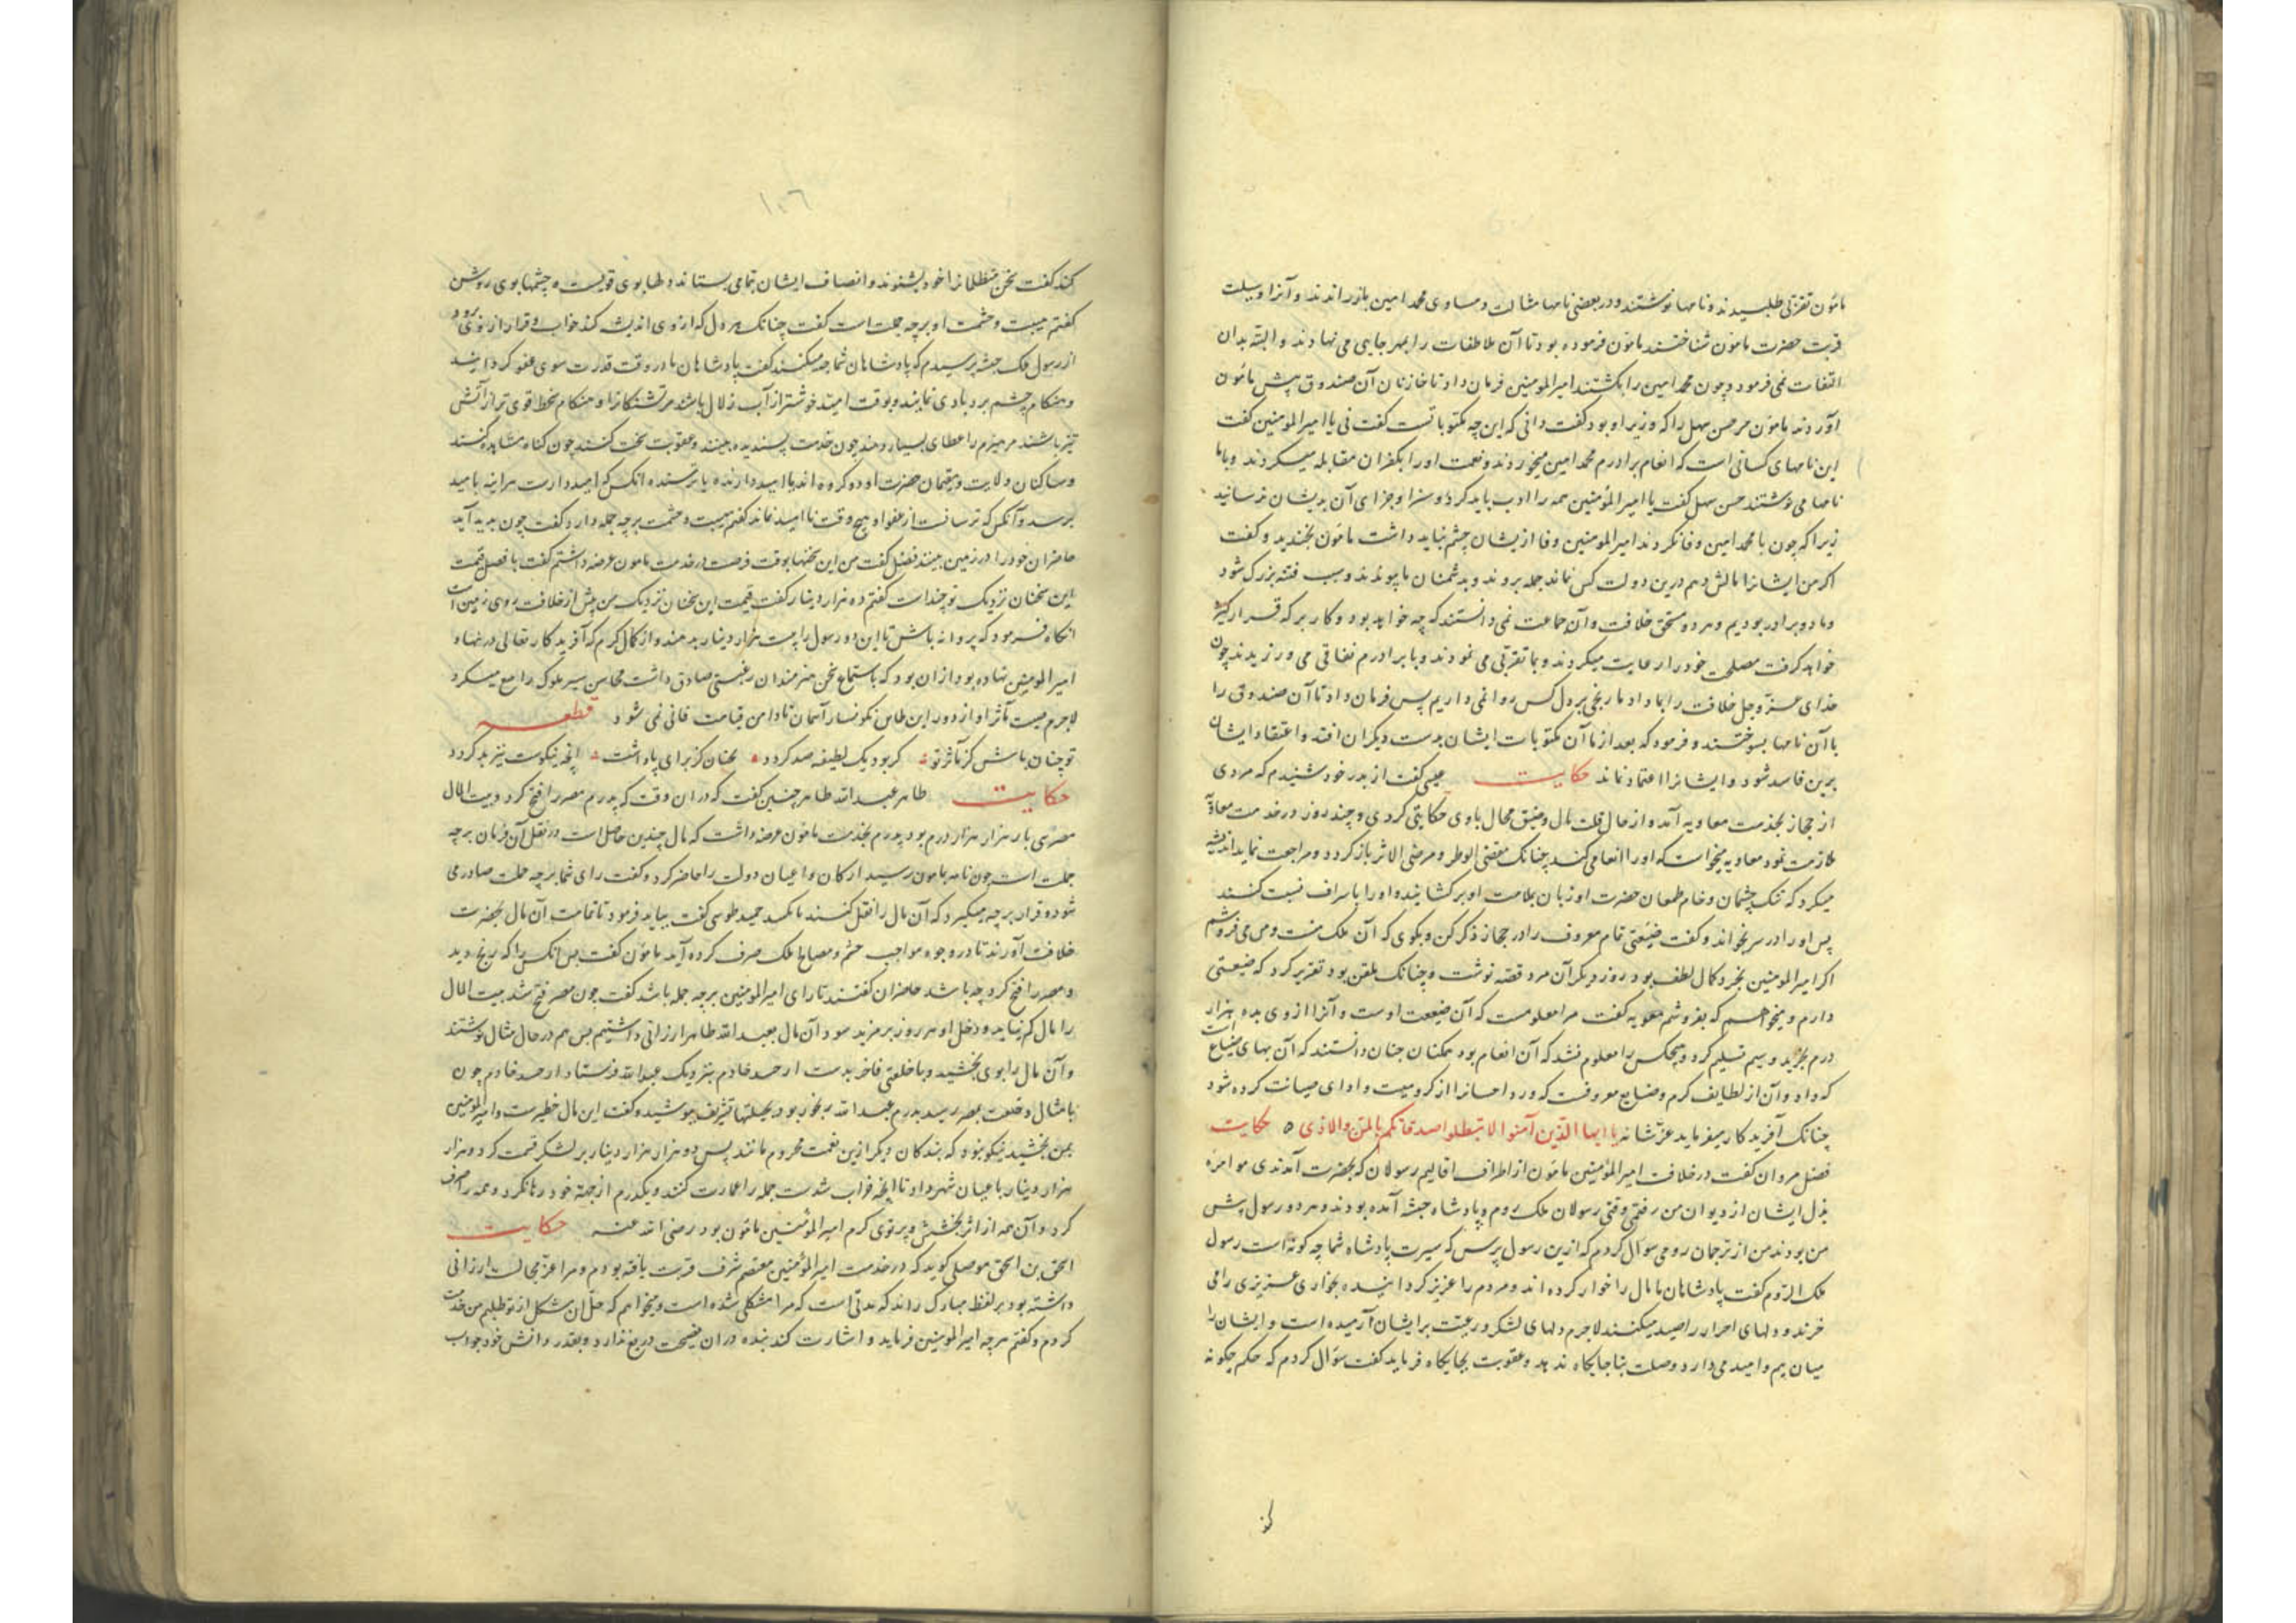 مامون تقربی طلبیدند و نامها نوشتند و در بعضی نامها مثالب و مساوی محمد امین باز راندند و آنرا وسیلت
قربت حضرت مامون شناختند مامون فرموده بود تا آن ملاطفات را بمهر جایی می نهادند و البته بدان
التفات نمی فرمود و چون محمد امین را بکشتند امیرالمومنین فرمان داد تا خازنان آن صندوق پیش مامون
آوردند مامون مر حسن سهل را که وزیر او بود گفت دانی که این چه مکتوباتست گفت نی یا امیرالمومنین گفت
این نامهای کسانی است که انعام برادرم محمد امین میخوردند و نعمت او را بکفران مقابله میکردند و بما
نامها می نوشتند حسن سهل گفت یا امیرالمؤمنین همه را ادب باید کرد و سزا و جزای آن بدیشان رسانید
زیرا که چون با محمد امین وفا نکردند امیرالمومنین وفا ازیشان چشم نباید داشت مامون بخندید و گفت
اگر من ایشانرا مالش دهم درین دولت کس نماند جمله بروند و بدشمنان ما پیوندند و سبب فتنه بزرگ شود
و ما دو برادر بودیم و هر دو مستحق خلافت و آن جماعت نمی دانستند که چه خواهد بود و کار بر که قرار
خواهد گرفت مصلحت خود را رعایت میکردند و بما تقربی می نمودند و با برادرم نفاقی می ورزیدند چون
خدای عز و جل خلافت را بما داد ما رنجی بر دل کس روا نمی داریم پس فرمان داد تا آن صندوق را
با آن نامها بسوختند و فرمود که بعد از ما آن مکتوبات ایشان بدست دیگران افتد و اعتقاد ایشان
برین فاسد شود و ایشانرا اعتماد نماند حکایت عیسی گفت از پدر خود شنیدم که مردی
از حجاز بخدمت معاویه آمد و از حال قلت مال و ضیق مجال با وی حکایتی کردی و چند روز در خدمت معاویه
ملازمت نمود معاویه میخواست که او را انعامی کند چنانک مقضی الوطر و مرضی الاثر باز گردد و مراجعت نماید اندیشه
میکرد که تنک چشمان و خام طمعان حضرت او زبان بملامت او برکشایند و او را باسراف نسبت کنند
پس او را در سر بخواند و گفت ضیعتی تمام معروف را در حجاز ذکر کن و بگوی که آن ملک منست و من می فروشم
اگر امیرالمومنین بخرد کمال لطف بود روز دیگر آن مرد قصه نوشت و چنانک ملقن بود تقریر کرد که ضیعتی
دارم و میخواهم که بفروشم معویه گفت مرا معلومست که آن ضیعت اوست و آنرا از وی بده هزار
درم بخرید و سیم تسلیم کرد و هیچکس را معلوم نشد که آن انعام بود همکنان چنان دانستند که آن بهای ضیاع است
که داد و آن از لطایف کرم و صنایع معروفست که ورد احسانرا از کرد میت و ادای صیانت کرده شود
چنانک آفریدکار میفرماید عز شانه یا ایها الذین آمنوا لا تبطلوا صدقاتکم بالمن والاذی ه حکایت
فضل مروان گفت در خلافت امیرالمؤمنین مامون از اطراف اقالیم رسولان که بحضرت آمدندی موامره
نزل ایشان از دیوان من رفتی وقتی رسولان ملک روم و پادشاه حبشه آمده بودند و هر دو رسول پیش
من بودند من از ترجمان رومی سوال کردم که ازین رسول پرس که سیرت پادشاه شما چه گونه است رسول
ملک الروم گفت پادشاهان ما مال را خوار کرده اند و مردم را عزیز گردانیده بخواری عزیزی را می
خرند و دلهای احرار را صید میکنند لاجرم دلهای لشکر و رعیت بر ایشان آرمیده است و ایشان را
میان بیم و امید می دارد و صلت بناجایگاه ندهد و عقوبت بجایگاه فرماید گفت سؤال کردم که حکم چگونه
کند
١٠٦
کند گفت سخن متظلمانرا خود بشنوند و انصاف ایشان بتمامی بستانند دلها بوی قویست و چشمها بوی روشن
گفتم هیبت و حشمت او بر چه جملت است گفت چنانک هر دل که از وی اندیشه کند خواب و قرار از وی برود
از رسول ملک حبشه پرسیدم که پادشاهان شما چه میکنند گفت پادشاهان ما در وقت قدرت سوی عفو گرد ایند
و هنگام چشم بردباری نمایند و بوقت امید خوشتر از آب زلال باشند مر تشنگانرا و هنگام سخط قوی تر از آتش
تیز باشند مر هیزم را عطای بسیار دهند چون خدمت پسندیده بینند و عقوبت سخت کنند چون گناه مشاهده کنند
و ساکنان ولایت و مقیمان حضرت او دو گروه اند یا امیددارنده یا ترسنده آنکس که امیددارست هر آینه بامید
برسد و آنکس که ترسانست از عفو او هیچ وقت ناامید نماند گفتم هیبت و حشمت بر چه جمله دارد گفت چون بدید آید
حاضران خود را در زمین بینند فضل گفت من این سخنها بوقت فرصت در خدمت مامون عرضه داشتم گفت یا فضل قیمت
این سخنان نزدیک تو چنداست گفتم ده هزار دینار گفت قیمت این سخنان نزدیک من بیش از خلافت روی زمین است
آنگاه فرمود که پروانه باش تا این دو رسول را بیست هزار دینار بدهند و از کمال کرم که آفریدکار تعالی در نهاد
امیرالمومنین نهاده بود ازان بود که باستماع سخن هنرمندان رغبتی صادق داشت محاسن سیر ملوک را جمع میکرد
لاجرم صیت مآثر او از دور این طاس نگونسار آسمان تا دامن قیامت فانی نمی شود قطعه
تو چنان باش کز مآثر تو گر بود یک لطیفه صد گردد نچنان کز برای پاداشت آنچه نیکوست نیز بد گردد
حکایت طاهر عبدالله طاهر حسین گفت که در ان وقت که پدرم مصر را فتح کرد و بیت المال
مصر سی بار هزار هزار درم بود پدرم بخدمت مامون عرضه داشت که مال چندین حاصل است در نقل آن فرمان بر چه
جملت است چون نامه بمامون رسید ارکان و اعیان دولت را حاضر کرد و گفت رای شما بر چه جملت صادر می
شود و قرار بر چه میگیرد که آن مال را نقل کنند یا نکنند حمید طوسی گفت بباید فرمود تا تمامت آن مال بحضرت
خلافت آورند تا در وجوه مواجب حشم و مصالح ملک صرف کرده آید مامون گفت پس آنکس را که رنج دید
و مصر را فتح کرد چه باشد حاضران گفتند تا رای امیرالمومنین بر چه جمله باشد گفت چون مصر فتح شد بیت المال
را مال کم نیاید و دخل او هر روز بر مزید بود آن مال بعبدالله طاهر ارزانی داشتیم پس هم در حال مثال نوشتند
و آن مال را بوی بخشید و با خلعتی فاخر بدست احمد خادم بنزدیک عبدالله فرستاد احمد خادم چون
با مثال و خلعت بمصر رسید پدرم عبدالله رنجور بود بحیلتها تشریف بپوشید و گفت این مال خطیرست و امیرالمومنین
بمن بخشید نیکو نبود که بندگان دیگر ازین نعمت محروم مانند پس دو هزار هزار دینار بر لشکر قسمت کرد و هزار
هزار دینار باعیان شهر داد تا آنچه خراب شدست جمله را عمارت کنند و یکدرم از جهة خود رها نکرد و همه را صرف
کرد و آن همه از اثر بخشش و پرتوی کرم امیرالمؤمنین مامون بود رضی الله عنه حکایت
اسحق بن اسحق موصلی گوید که در خدمت امیرالمؤمنین معتصم شرف قربت یافته بودم و مرا عز مجالست ارزانی
داشته بود بر لفظ مبارک راند که مدتی است که مرا مشکلی شده است و میخواهم که حل آن مشکل از تو طلبم من خدمت
کردم و گفتم هر چه امیرالمومنین فرماید و اشارت کند بنده دران نصیحت دریغ ندارد و بقدر دانش خود جواب